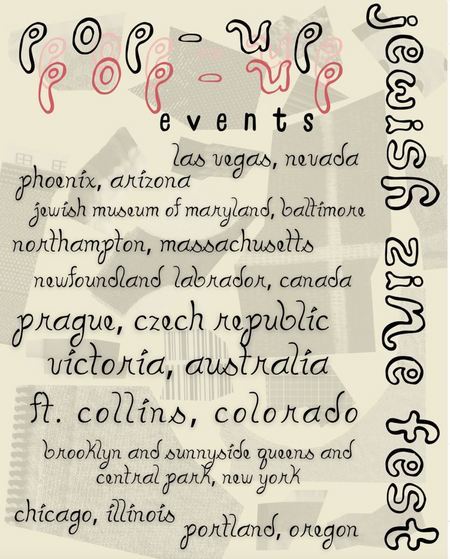 pop-up
pop-up
events
las vegas, nevada
phoenix, arizona
jewish museum of maryland, baltimore
northampton, massachusetts
newfoundland labrador, canada
prague, czech republic
victoria, australia
ft. collins, colorado
brooklyn and sunnyside queens and
central park, new york
chicago, illinois
portland, oregon
jewish zine fest